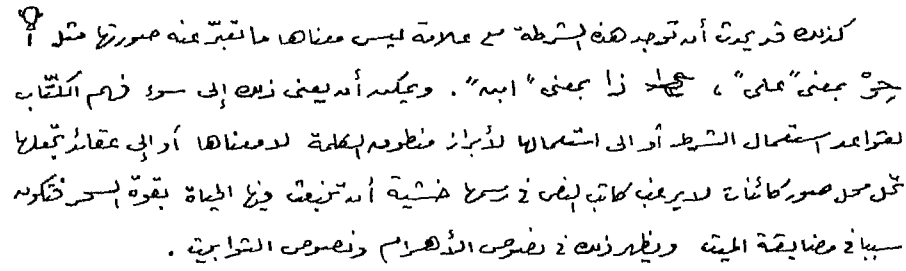 كذلك قد يحدث أن توجد هذه الشرطة مع علامة ليس معناها ما تعبّر عنه صورتها مثل
حِرْ بمعنى "على" ، ذا بمعنى "ابن" . ويمكن أن يعنى ذلك إلى سوء فهم الكتّاب
لقواعد استعمال الشرط أو الى استعمالها لأبراز منطوق الكلمة لا معناها أو إلى عقائد تجعلها
تحل محل صور كائنات لا يرغب كاتب النص فى رسمها خشية أن تنبعث فيها الحياة بقوة السحر فتكون
سببا فى مضايقة الميت ويظهر ذلك فى نصوص الأهرام ونصوص التوابيت .